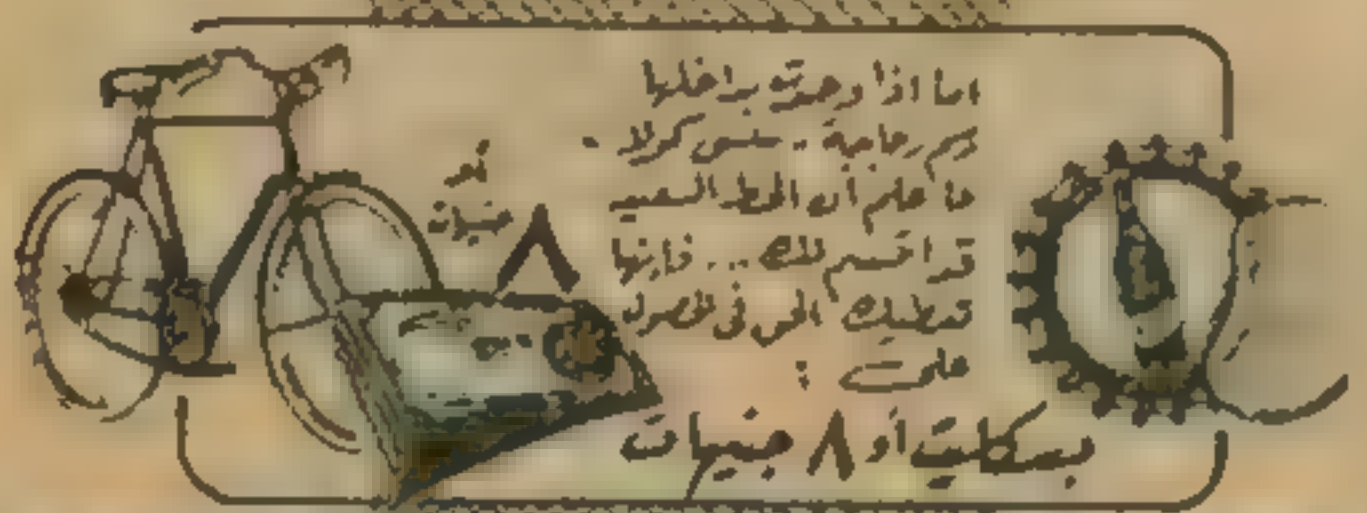 اما اذا وجدت بداخلها
رسم زجاجة .. كولا .
فاعلم أن الحظ السعيد
قد ابتسم لك ... فإنها
تعطيك الحق فى الحصول
على :
بسكليت أو ٨ جنيهات
أو
٨ جنيهات